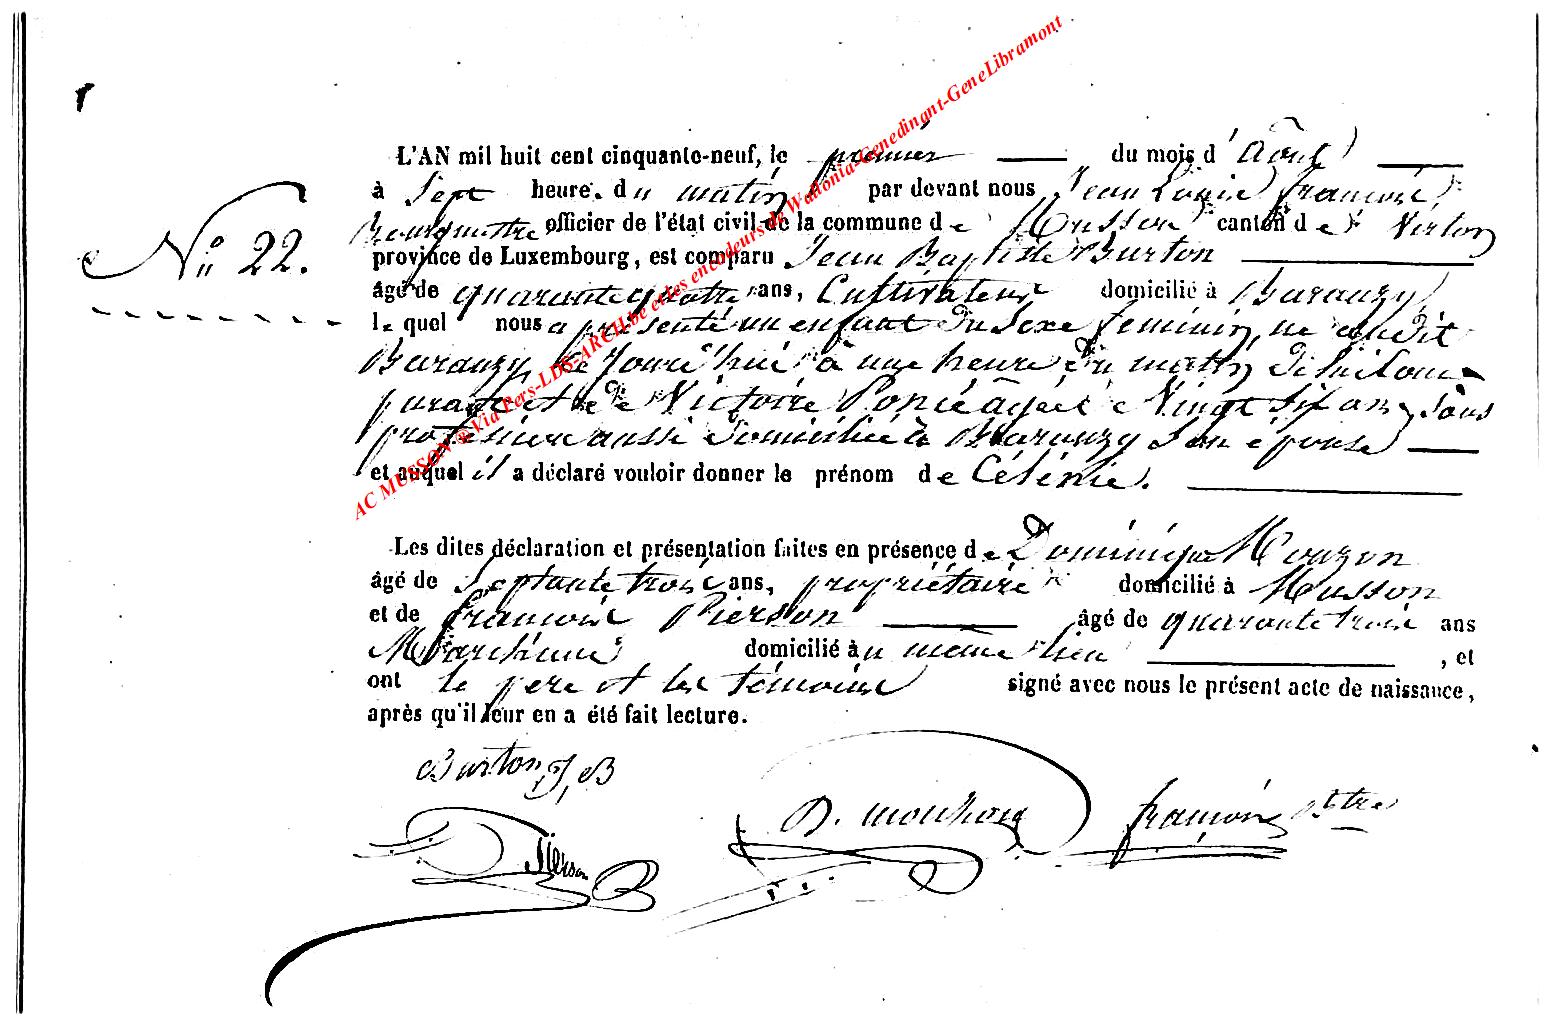 L'AN mil huit cent cinquante-neuf, le premier du mois d'Août
à Sept heure. du matin par devant nous Jean Louis François,
Bourgmestre officier de l'état civil de la commune de Musson canton de Virton
province de Luxembourg, est comparu Jean Baptiste Burton
âgé de quarante quatre ans, Cultivateur domicilié à Baranzy
N° 22.
lequel nous a présenté un enfant du sexe féminin, né audit
Baranzy, ce jourd'hui à une heure du matin de lui Com-
parant et de Victoire âgée de Vingt six ans, sans
profession aussi domiciliée à Baranzy son épouse
et auquel il a déclaré vouloir donner le prénom de Célénie.
Les dites déclaration et présentation faites en présence de Dominique Mouzon
âgé de Septante trois ans, propriétaire domicilié à Musson
et de François Pierson âgé de quarante trois ans
domicilié au même lieu , et
ont le père et les témoins signé avec nous le présent acte de naissance,
après qu'il leur en a été fait lecture.
Burton, J, B
D. mouzon
françois Bstre
Pierson
AC MUSSON @ Via Pers-LDS-ARCH.be et les encodeurs de Wallonia-Genedinant-GeneLibramont